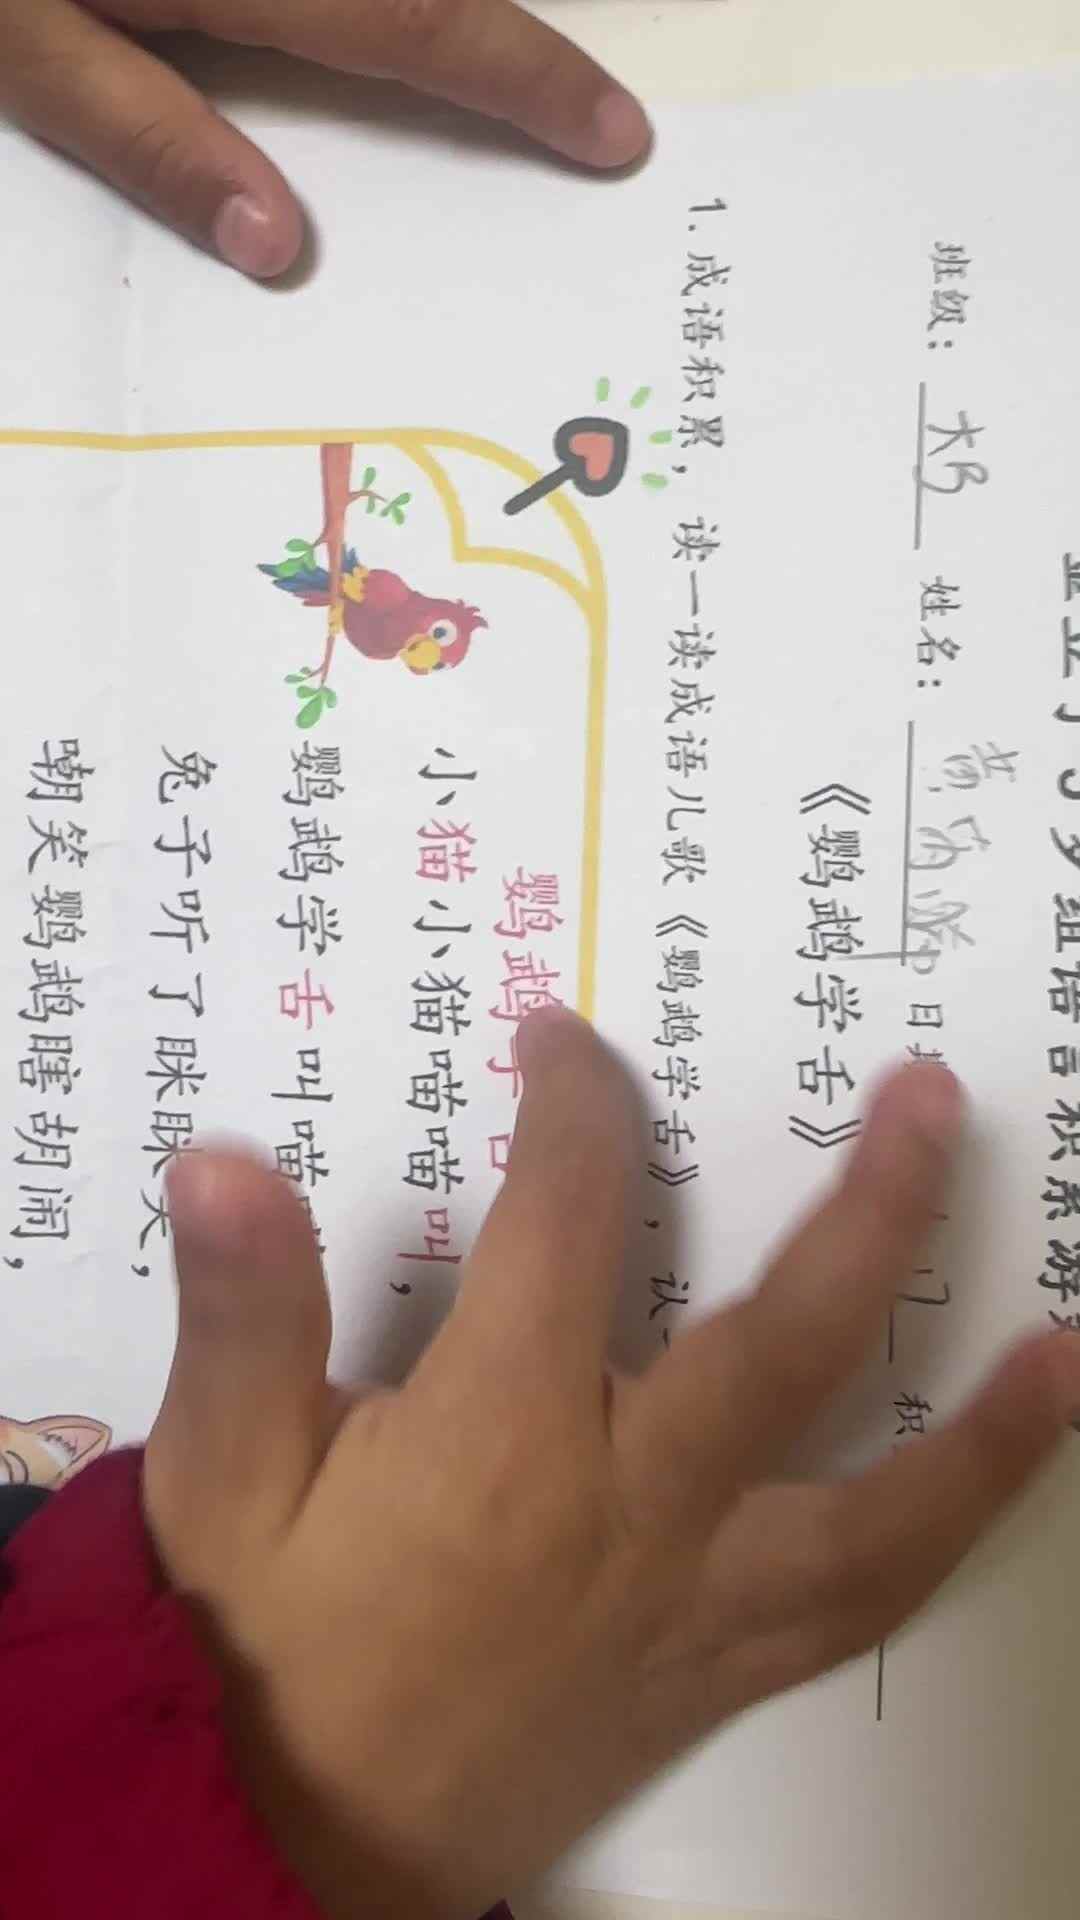 多组语言积累游
班级： 大B 姓名： 黄 日
《鹦鹉学舌》
1. 成语积累，读一读成语儿歌《鹦鹉学舌》，认
鹦鹉学舌
小猫小小猫喵喵叫，
鹦鹉学舌叫喵
兔子听了眯眯笑，
嘲笑鹦鹉瞎胡闹，